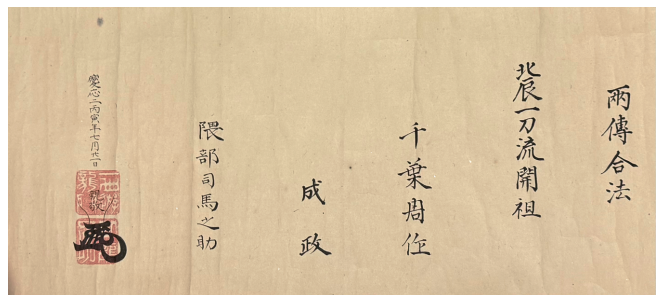 兩傳合法
北辰一刀流開祖
千葉周作
成政
隈部司馬之助
慶応二丙寅年七月廿一日